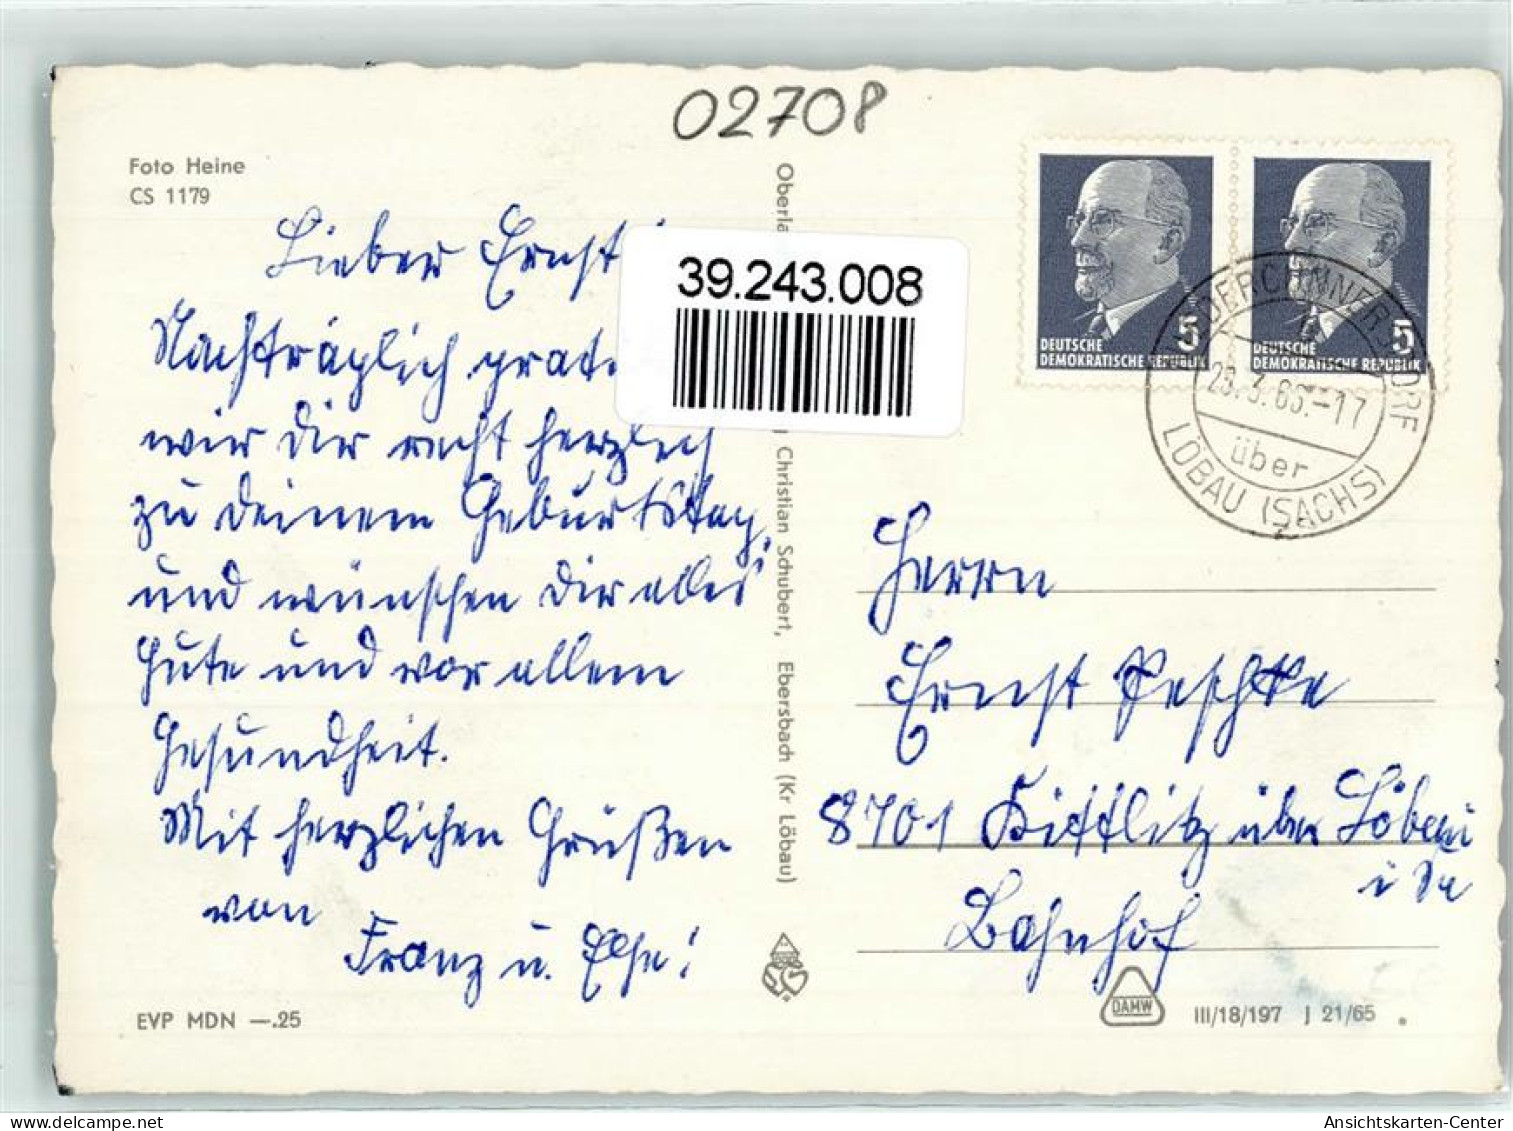 02708
Foto Heine
CS 1179
Lieber Ernst!
39.243.008
Nachträglich grat
wir Dir recht herzlich
zu deinem Geburtstag,
und wünschen Dir alles
Gute und vor allem
Gesundheit.
Mit herzlichen Grüßen
von
Franz u. Else!
EVP MDN —.25
Christian Schubert, Ebersbach (Kr Löbau)
DEUTSCHE
DEMOKRATISCHE REPUBLIK
5
DEUTSCHE
DEMOKRATISCHE REPUBLIK
5
über
LÖBAU (SACHS)
Herrn
Ernst Peschke
8701 Kittlitz über Löbau
i Sa
Bahnhof
DAMW
III/18/197 J 21/65
Ansichtskarten-Center